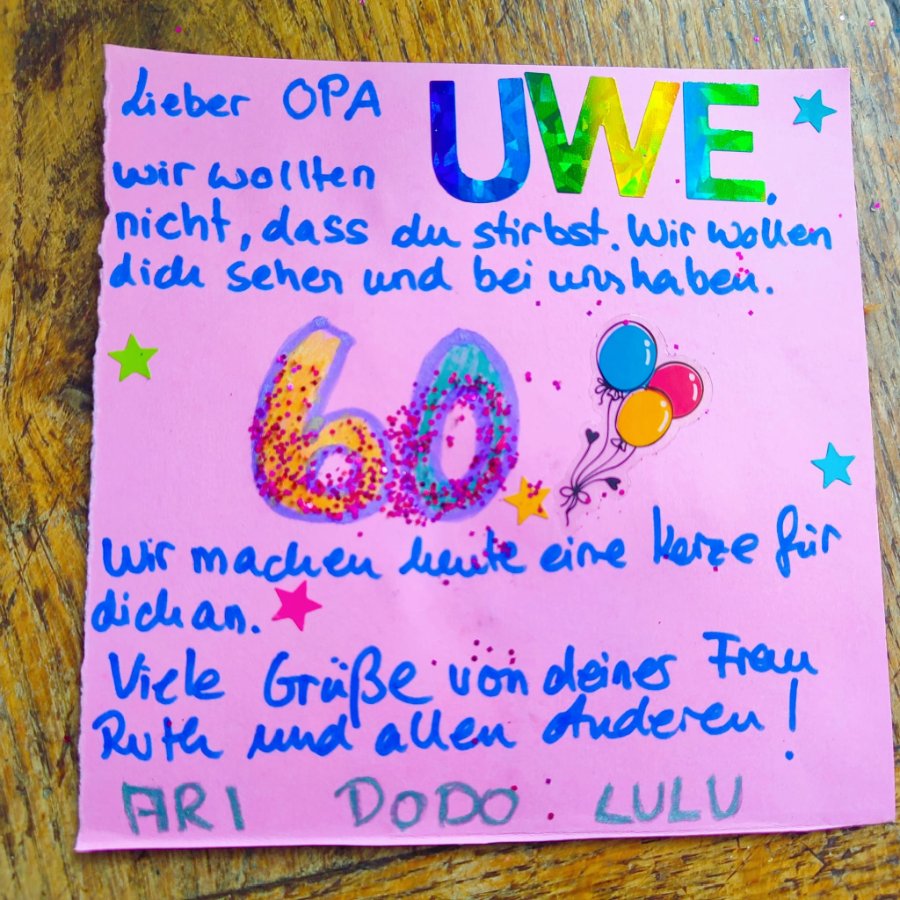 Lieber OPA UWE.
wir wollten
nicht, dass du stirbst. Wir wollen
dich sehen und bei uns haben.
60
Wir machen heute eine Kerze für
dich an.
Viele Grüße von deiner Frau
Ruth und allen Anderen!
ARI DODO LULU